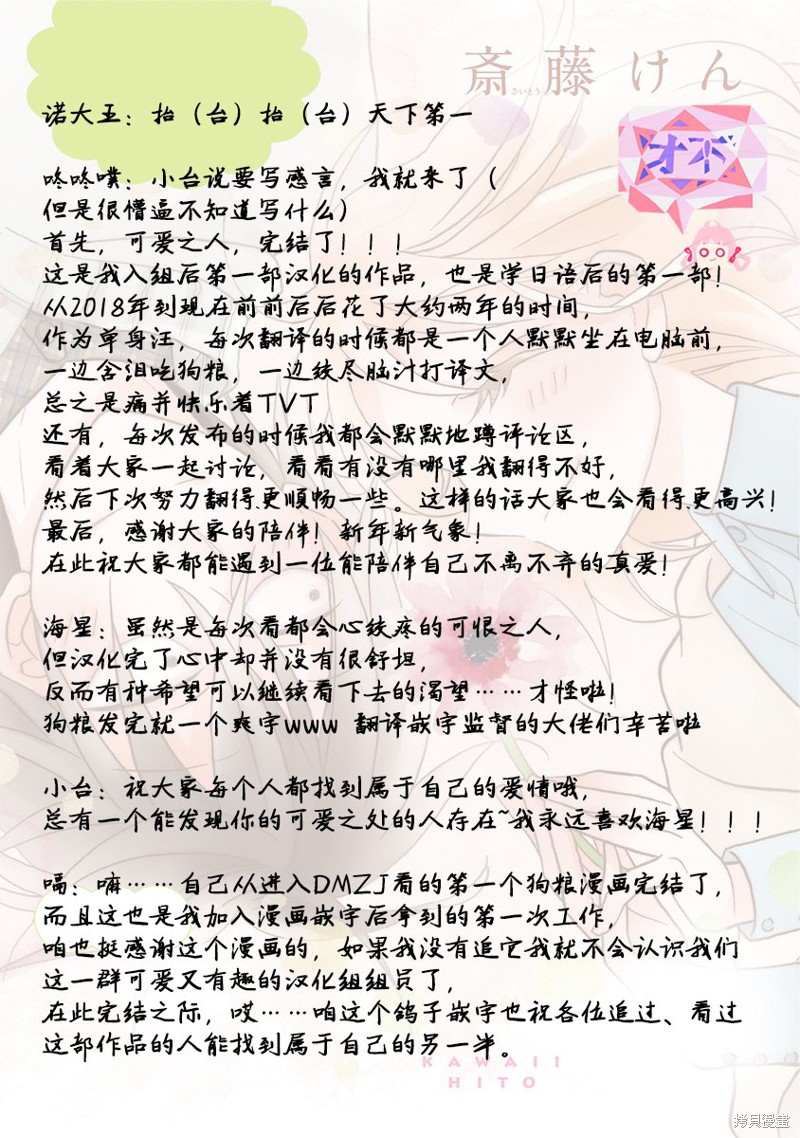 斎藤けん
さいとう
诺大王：抬（台）抬（台）天下第一
才不
咚咚噗：小台说要写感言，我就来了（
但是很懵逼不知道写什么）
首先，可爱之人，完结了！！！
这是我入组后第一部汉化的作品，也是学日语后的第一部！
从2018年到现在前前后后花了大约两年的时间，
作为单身汪，每次翻译的时候都是一个人默默坐在电脑前，
一边含泪吃狗粮，一边绞尽脑汁打译文，
总之是痛并快乐着TVT
还有，每次发布的时候我都会默默地蹲评论区，
看着大家一起讨论，看看有没有哪里我翻得不好，
然后下次努力翻得更顺畅一些。这样的话大家也会看得更高兴！
最后，感谢大家的陪伴！新年新气象！
在此祝大家都能遇到一位能陪伴自己不离不弃的真爱！
海星：虽然是每次看都会心绞疼的可恨之人，
但汉化完了心中却并没有很舒坦，
反而有种希望可以继续看下去的渴望……才怪啦！
狗粮发完就一个爽字www 翻译嵌字监督的大佬们辛苦啦
小台：祝大家每个人都找到属于自己的爱情哦，
总有一个能发现你的可爱之处的人存在~我永远喜欢海星！！！
嗝：嘛……自己从进入DMZJ看的第一个狗粮漫画完结了，
而且这也是我加入漫画嵌字后拿到的第一次工作，
咱也挺感谢这个漫画的，如果我没有追它我就不会认识我们
这一群可爱又有趣的汉化组组员了，
在此完结之际，哎……咱这个鸽子嵌字也祝各位追过、看过
这部作品的人能找到属于自己的另一半。
KAWAII
HITO
拷貝漫畫